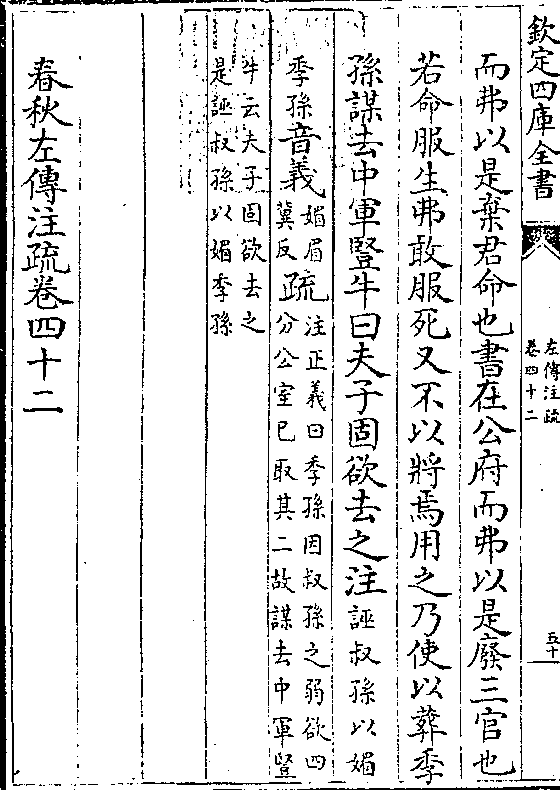 欽定四庫全書
左傳注疏
卷四十二
五十
而弗以是棄君命也書在公府而弗以是廢三官也
若命服生弗敢服死又不以將焉用之乃使以葬季
孫謀去中軍豎牛曰夫子固欲去之注誣叔孫以媚
季孫音義媚眉
冀反疏注正義曰季孫因叔孫之弱欲四
分公室已取其二故謀去中軍豎
牛云夫子固欲去之
是誣叔孫以媚季孫
春秋左傳注疏卷四十二